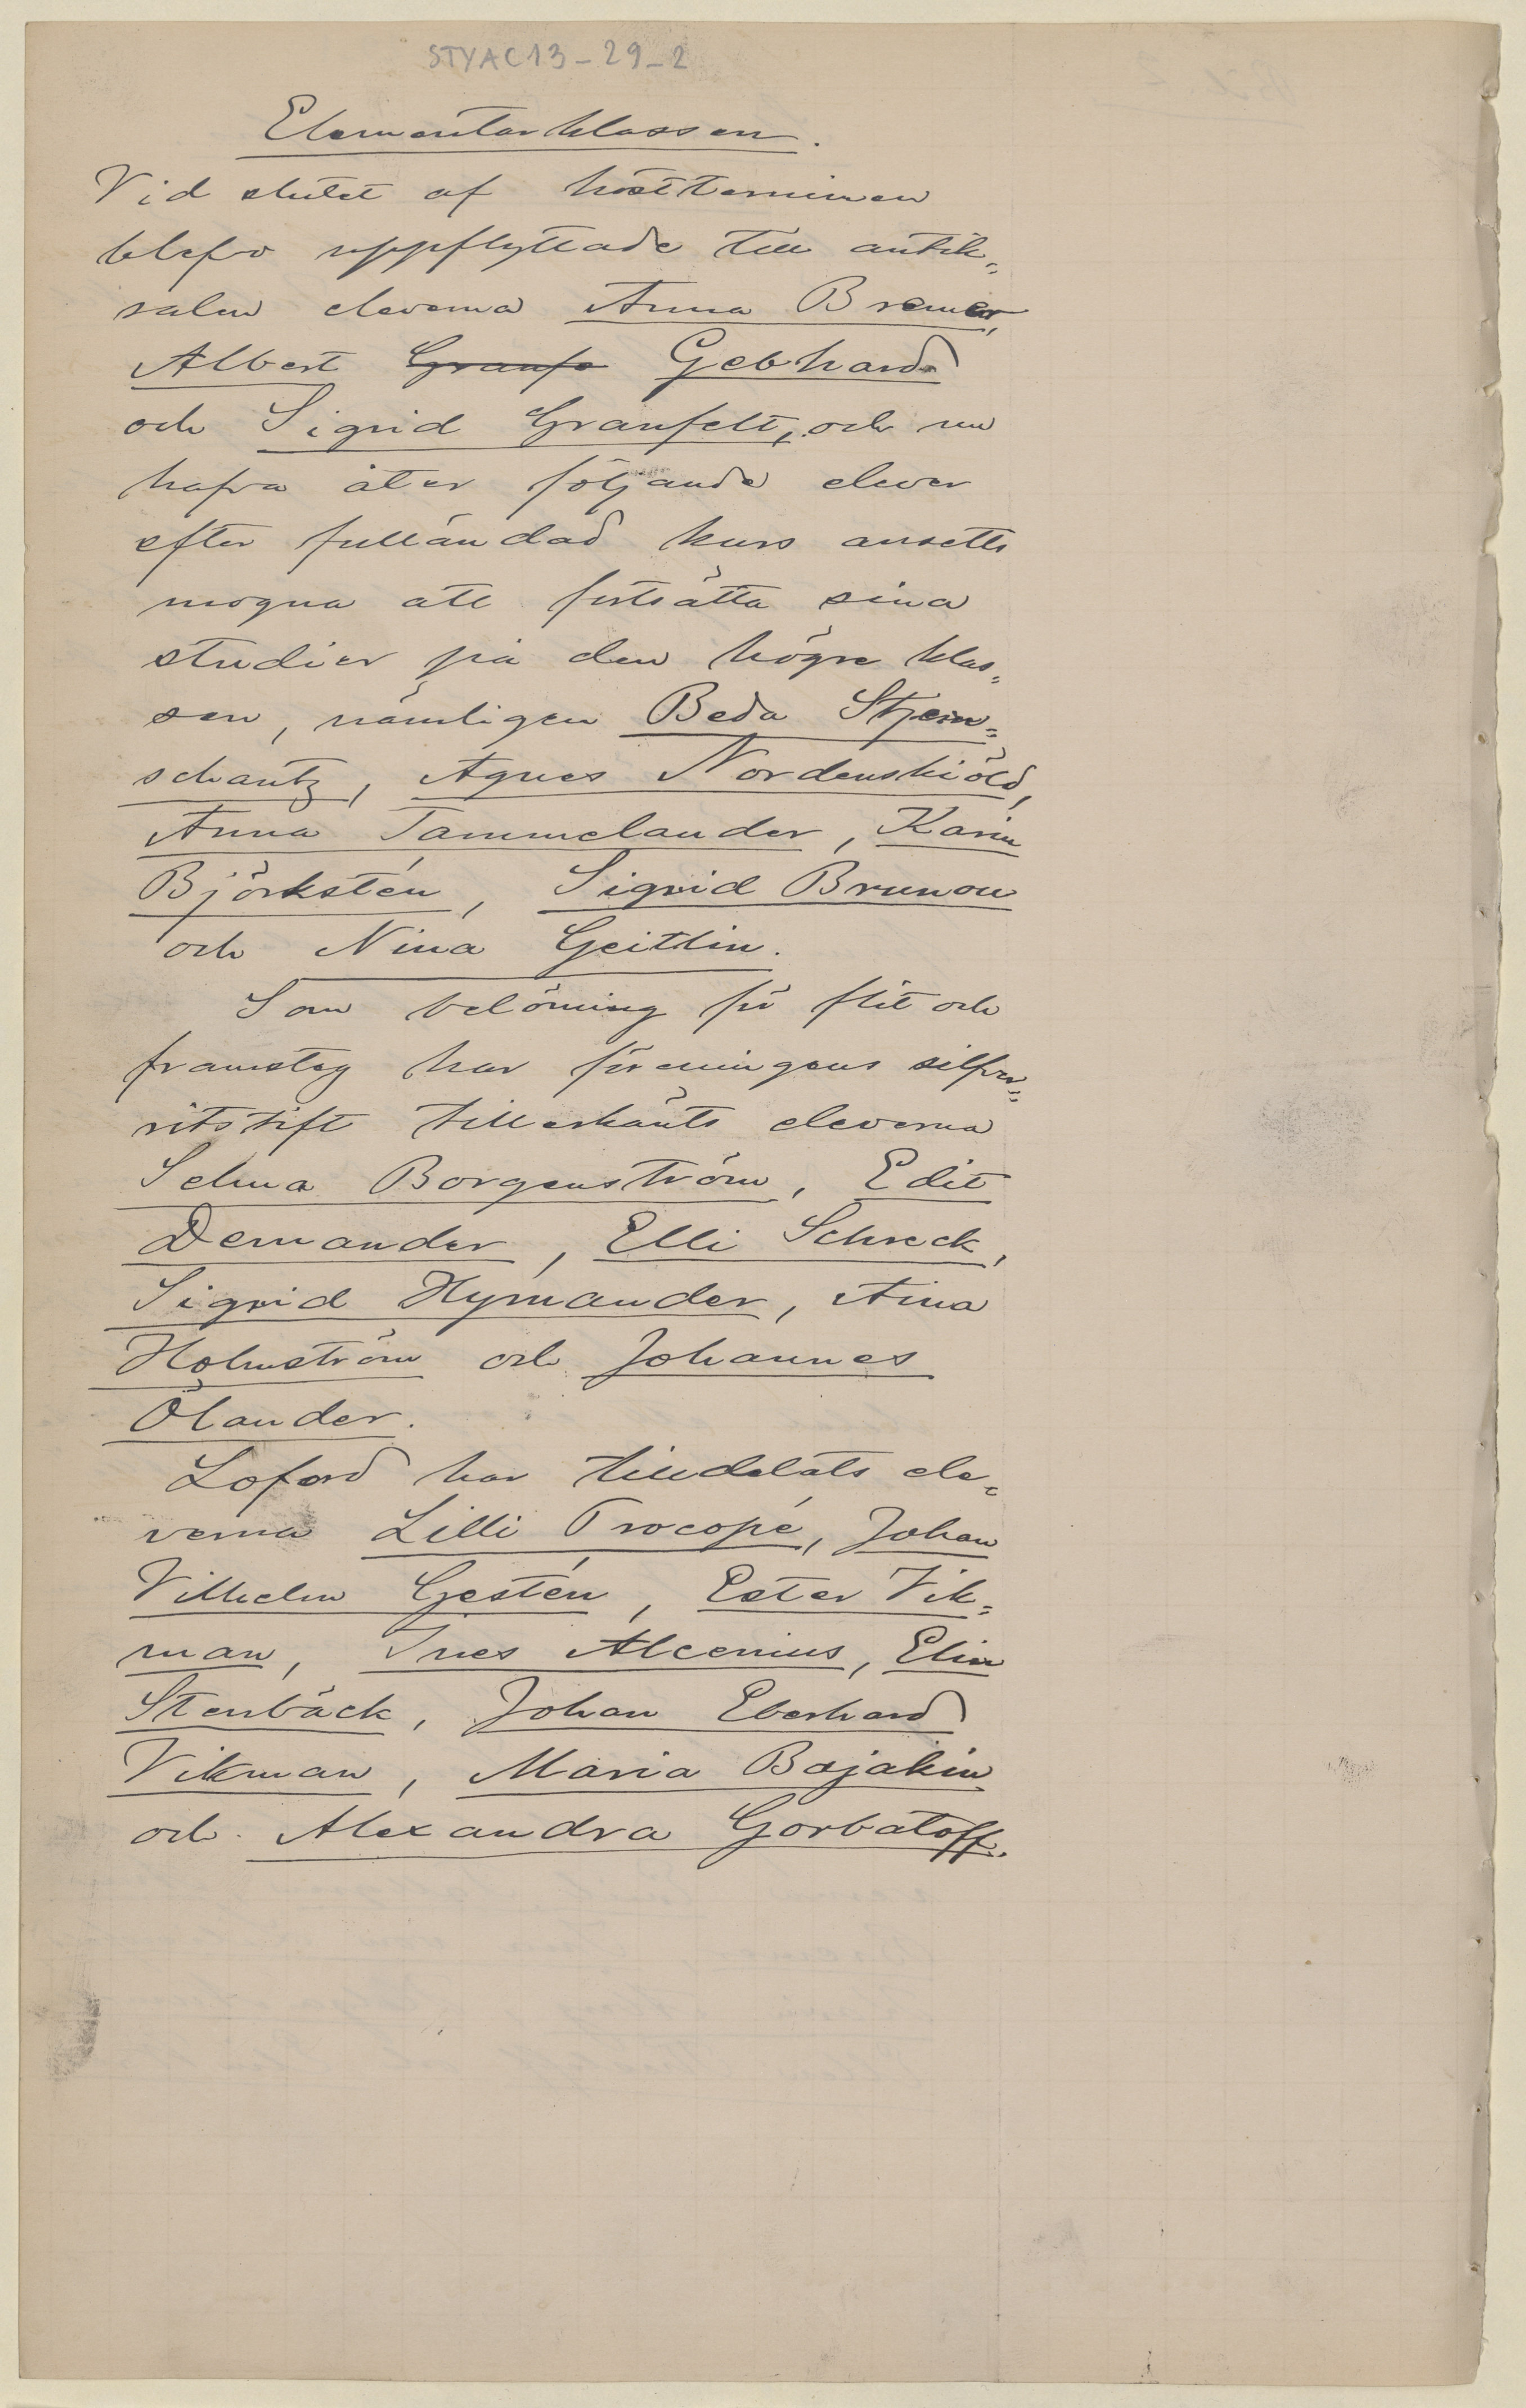 STYAC13-29-2
Elementarklassen.
Vid slutet af höstterminen
blefvo uppflyttade till antik-
salen eleverna Anna Bremer,
Albert Granfe Gebhard
och Sigrid Granfelt, och nu
hafva åter följande elever
efter fulländad kurs ansetts
mogna att fortsätta sina
studier på den högre klas-
sen, nämligen Beda Stjern-
schantz, Agnes Nordenskiöld,
Anna Tammelander, Karin
Björkstén, Sigrid Brunou
och Nina Geitlin.
Som belöning för flit och
framsteg har föreningens silfver-
ritstift tillerkänts eleverna
Selma Borgenström, Edit
Demander, Elli Schreck,
Sigrid Hymander, Aina
Holmström och Johannes
Ölander.
Loford har tilldelats ele-
verna Lilli Procopé, Johan
Vilhelm Gestén, Ester Vik-
man, Ines Alcenius, Elin
Stenbäck, Johan Eberhard
Vikman, Maria Bajakin
och Alexandra Gorbatoff.